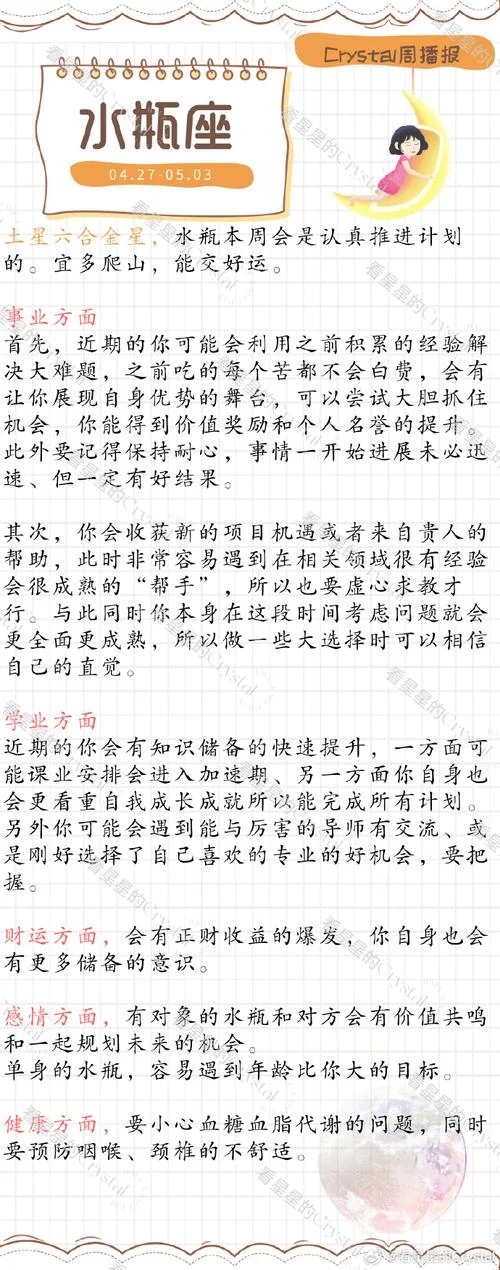 Crystal周播报
水瓶座
04.27-05.03
土星六合金星，水瓶本周会是认真推进计划
的。宜多爬山，能交好运。
事业方面
首先，近期的你可能会利用之前积累的经验解
决大难题，之前吃的每个苦都不会白费，会有
让你展现自身优势的舞台，可以尝试大胆抓住
机会，你能得到价值奖励和个人名誉的提升。
此外要记得保持耐心，事情一开始进展未必迅
速、但一定有好结果。
其次，你会收获新的项目机遇或者来自贵人的
帮助，此时非常容易遇到在相关领域很有经验
会很成熟的“帮手”，所以也要虚心求教才
行。与此同时你本身在这段时间考虑问题就会
更全面更成熟，所以做一些大选择时可以相信
自己的直觉。
学业方面
近期的你会有知识储备的快速提升，一方面可
能课业安排会进入加速期、另一方面你自身也
会更看重自我成长成就所以能完成所有计划。
另外你可能会遇到能与厉害的导师有交流、或
是刚好选择了自己喜欢的专业的好机会，要把
握。
财运方面，会有正财收益的爆发，你自身也会
有更多储备的意识。
感情方面，有对象的水瓶和对方会有价值共鸣
和一起规划未来的机会。
单身的水瓶，容易遇到年龄比你大的目标。
健康方面，要小心血糖血脂代谢的问题，同时
要预防咽喉、颈椎的不舒适。
@看星星的Crystal